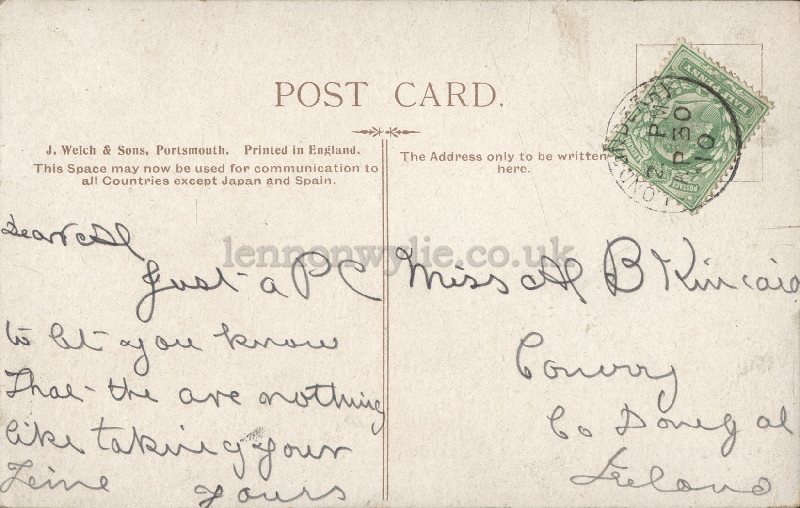 POST CARD.
J. Welch & Sons, Portsmouth. Printed in England.
This Space may now be used for communication to
all Countries except Japan and Spain.
The Address only to be written
here.
LONDONDERRY
PM
AP 30
10
POSTAGE
HALFPENNY
lennonwylie.co.uk
Dear M
Just a PC
to let you know
That the are nothing
like taking your
Teime yours
Miss M B Kincaid
Convoy
Co Donegal
Ireland